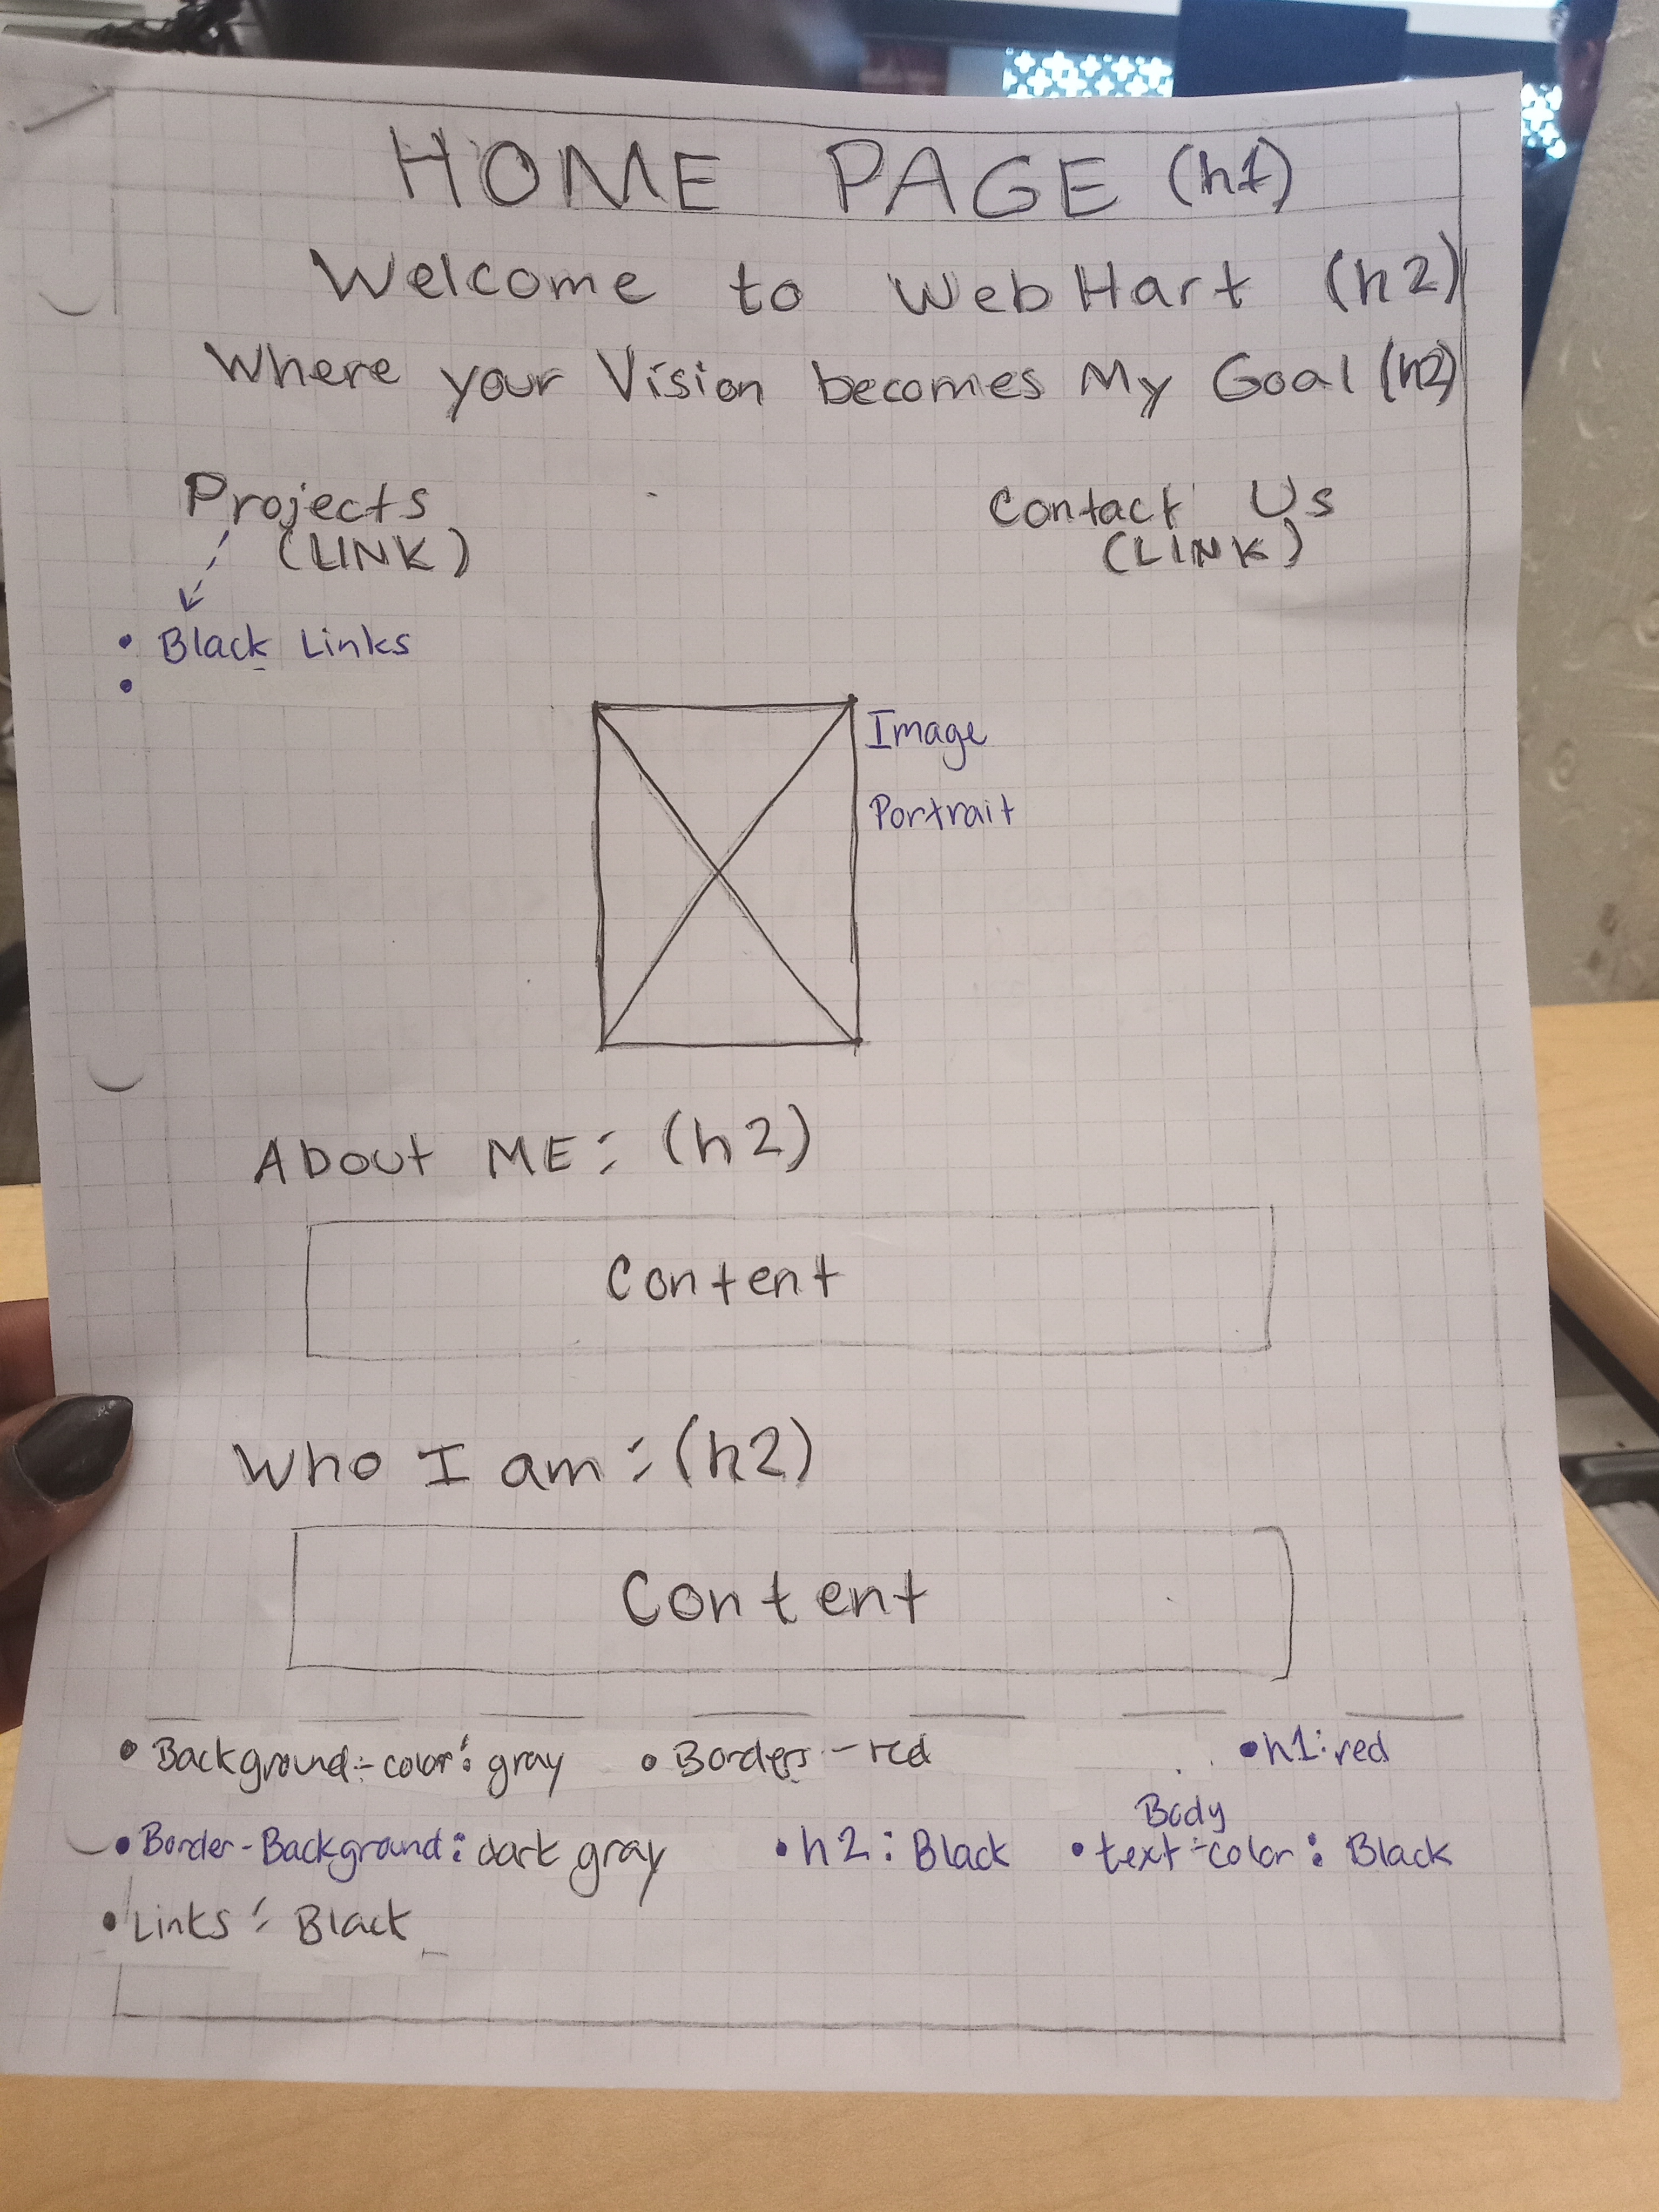 HOME PAGE (h1)
Welcome to WebHart (h2)
Where your Vision becomes My Goal (h2)
Projects
(LINK)
Contact Us
(LINK)
• Black Links
•
Image
Portrait
About ME: (h2)
Content
Who I am: (h2)
Content
• Background-color: gray • Borders - red • h1: red
Body
• Border-Background: dark gray • h2: Black • text-color: Black
• Links: Black